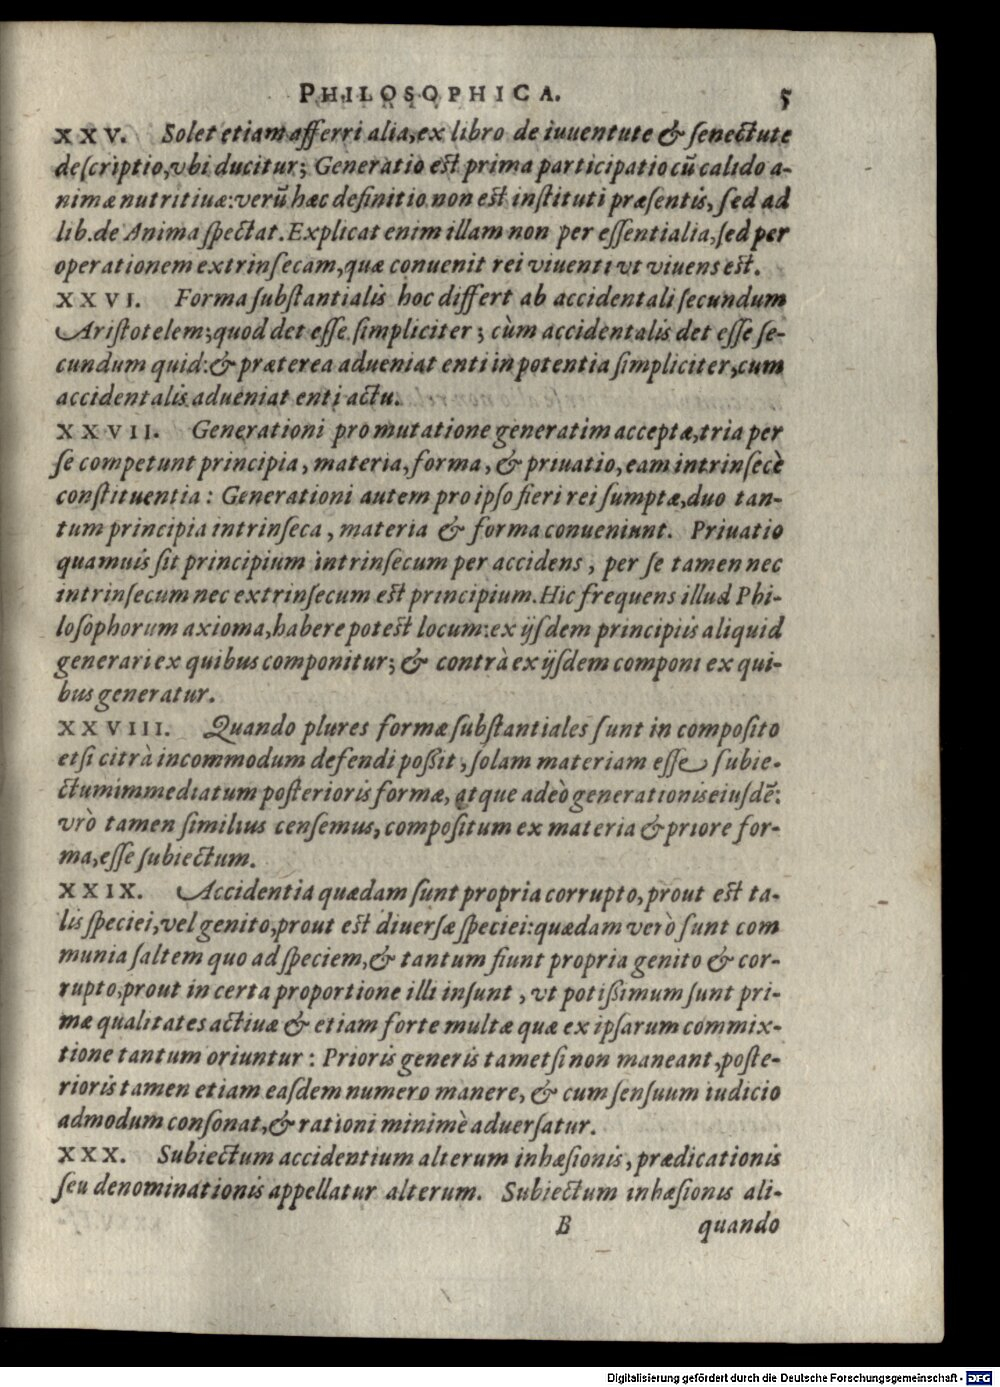 PHILOSOPHICA. 5
XXV. Solet etiam afferri alia, ex libro de iuuentute & ſenectute
deſcriptio, vbi ducitur; Generatio est prima participatio cũ calido a-
nimæ nutritiuæ: verũ hæc definitio non est inſtituti præſentis, ſed ad
lib. de Anima ſpectat. Explicat enim illam non per eſſentialia, ſed per
operationem extrinſecam, quæ conuenit rei viuenti vt viuens est.
XXVI. Forma ſubſtantialis hoc differt ab accidentali ſecundum
Ariſtotelem; quod det eſſe ſimpliciter; cùm accidentalis det eſſe ſe-
cundum quid: & præterea adueniat enti in potentia ſimpliciter, cum
accidentalis adueniat enti actu.
XXVII. Generationi pro mutatione generatim acceptæ, tria per
ſe competunt principia, materia, forma, & priuatio, eam intrinſecè
conſtituentia: Generationi autem pro ipſo fieri rei ſumptæ, duo tan-
tum principia intrinſeca, materia & forma conueniunt. Priuatio
quamuis ſit principium intrinſecum per accidens, per ſe tamen nec
intrinſecum nec extrinſecum est principium. Hic frequens illud Phi-
loſophorum axioma, habere potest locum: ex ijſdem principiis aliquid
generari ex quibus componitur; & contrà ex ijſdem componi ex qui-
bus generatur.
XXVIII. Quando plures formæ ſubſtantiales ſunt in compoſito
etſi citrà incommodum defendi poßit, ſolam materiam eſſe ſubie-
ctum immediatum poſterioris formæ, atque adeò generationis eiuſdẽ:
vrò tamen ſimilius cenſemus, compoſitum ex materia & priore for-
ma, eſſe ſubiectum.
XXIX. Accidentia quædam ſunt propria corrupto, prout est ta-
lis ſpeciei, vel genito, prout est diuerſæ ſpeciei: quædam verò ſunt com
munia ſaltem quo ad ſpeciem, & tantum fiunt propria genito & cor-
rupto, prout in certa proportione illi inſunt, vt potißimum ſunt pri-
mæ qualitates actiuæ & etiam forte multæ quæ ex ipſarum commix-
tione tantum oriuntur: Prioris generis tametſi non maneant, poſte-
rioris tamen etiam eaſdem numero manere, & cum ſenſuum iudicio
admodum conſonat, & rationi minimè aduerſatur.
XXX. Subiectum accidentium alterum inhæſionis, prædicationis
ſeu denominationis appellatur alterum. Subiectum inhæſionis ali-
B quando
Digitalisierung gefördert durch die Deutsche Forschungsgemeinschaft - DFG